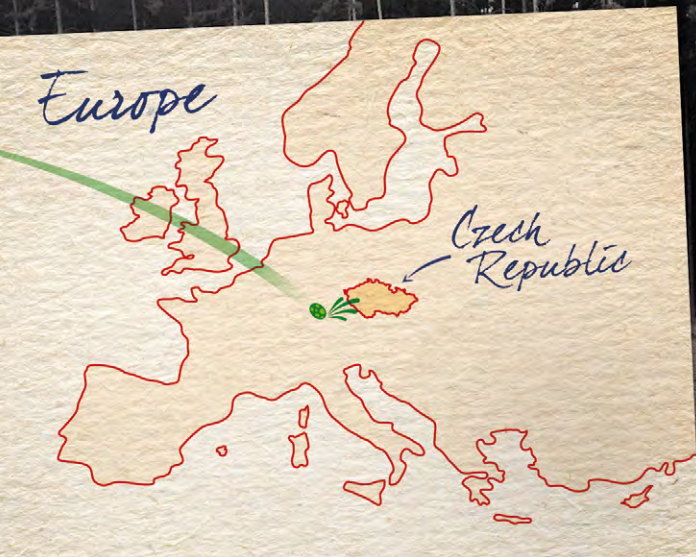 Europe
Czech
Republic